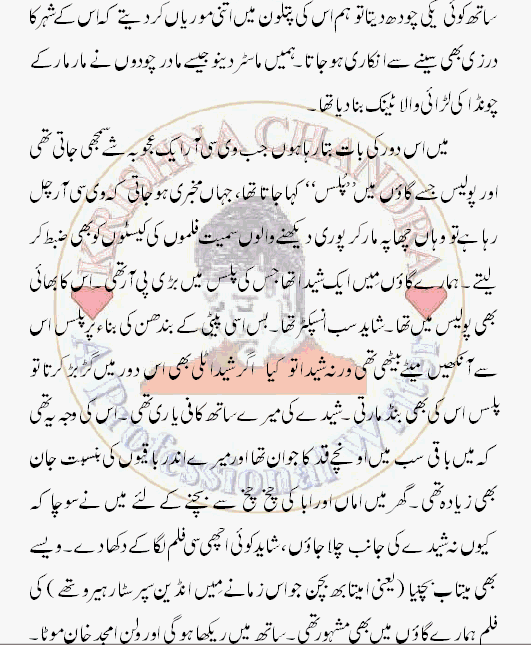 ساتھ کوئی یکی چودھ دیتا تو ہم اس کی پتلون میں اتنی موریاں کر دیتے کہ اس کے شہر کا
درزی بھی سینے سے انکاری ہو جاتا۔ ہمیں ماسٹر دینو جیسے مادر چودوں نے مار مار کے
چونڈا کی لڑائی والا ٹینک بنا دیا تھا۔
میں اس دور کی بات بتا رہا ہوں جب وی سی آر ایک عجوبہ شے سمجھی جاتی تھی
اور پولیس جسے گاؤں میں ’’پُلس‘‘ کہا جاتا تھا، جہاں مخبری ہو جاتی کہ وی سی آر چل
رہا ہے تو وہاں چھاپہ مار کر پوری دیکھنے والوں سمیت فلموں کی کیسٹوں کو بھی ضبط کر
لیتے۔ ہمارے گاؤں میں ایک شیدا تھا جس کی پلس میں بڑی پی آر تھی۔ اس کا بھائی
بھی پولیس میں تھا۔ شاید سب انسپکٹر تھا۔ بس اسی پیٹی کے بندھن کی بناء پر پلس اس
سے آنکھیں میٹے بیٹھی تھی ورنہ شیدا تو کیا اگر شیدا ٹلی بھی اس دور میں گڑبڑ کرتا تو
پلس اس کی بھی بنڈ مارتی۔ شیدے کی میرے ساتھ کافی یاری تھی۔ اس کی وجہ یہ تھی
کہ میں باقی سب میں اونچے قد کا جوان تھا اور میرے اندر باقیوں کی بنسبت جان
بھی زیادہ تھی۔ گھر میں اماں اور ابا کی چخ چخ سے بچنے کے لئے میں نے سوچا کہ
کیوں نہ شیدے کی جانب چلا جاؤں، شاید کوئی اچھی سی فلم لگا کے دکھا دے۔ ویسے
بھی میتاب بچیا (یعنی امیتابھ بچن جو اس زمانے میں انڈین سپر سٹار ہیرو تھے) کی
فلم ہمارے گاؤں میں بھی مشہور تھی۔ ساتھ میں ریکھا ہوگی اور ولن امجد خان موٹا۔
KRISHNA CHANDRA
A Professional Writer